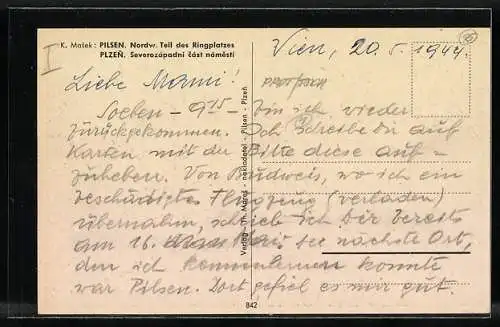 K. Malek: PILSEN. Nordw. Teil des Ringplatzes
PLZEŇ. Severozápadní část náměstí
I
Wien, 20. 5. 1944.
Liebe Mami!
Soeben – 9¹⁵ – bin ich wieder
zurückgekommen. Ich schreibe Dir auf
Karten mit der Bitte diese auf-
zuheben. Von Budweis, wo ich ein
beschädigtes Flugzeug (verladen)
übernahm, schrieb ich Dir bereits
am 16. Mai. nächste Ort,
den ich kennenlernen konnte
war Pilsen. Dort gefiel es mir gut.
Verlag - Th. Mareš - nakladatel - Pilsen - Plzeň
842